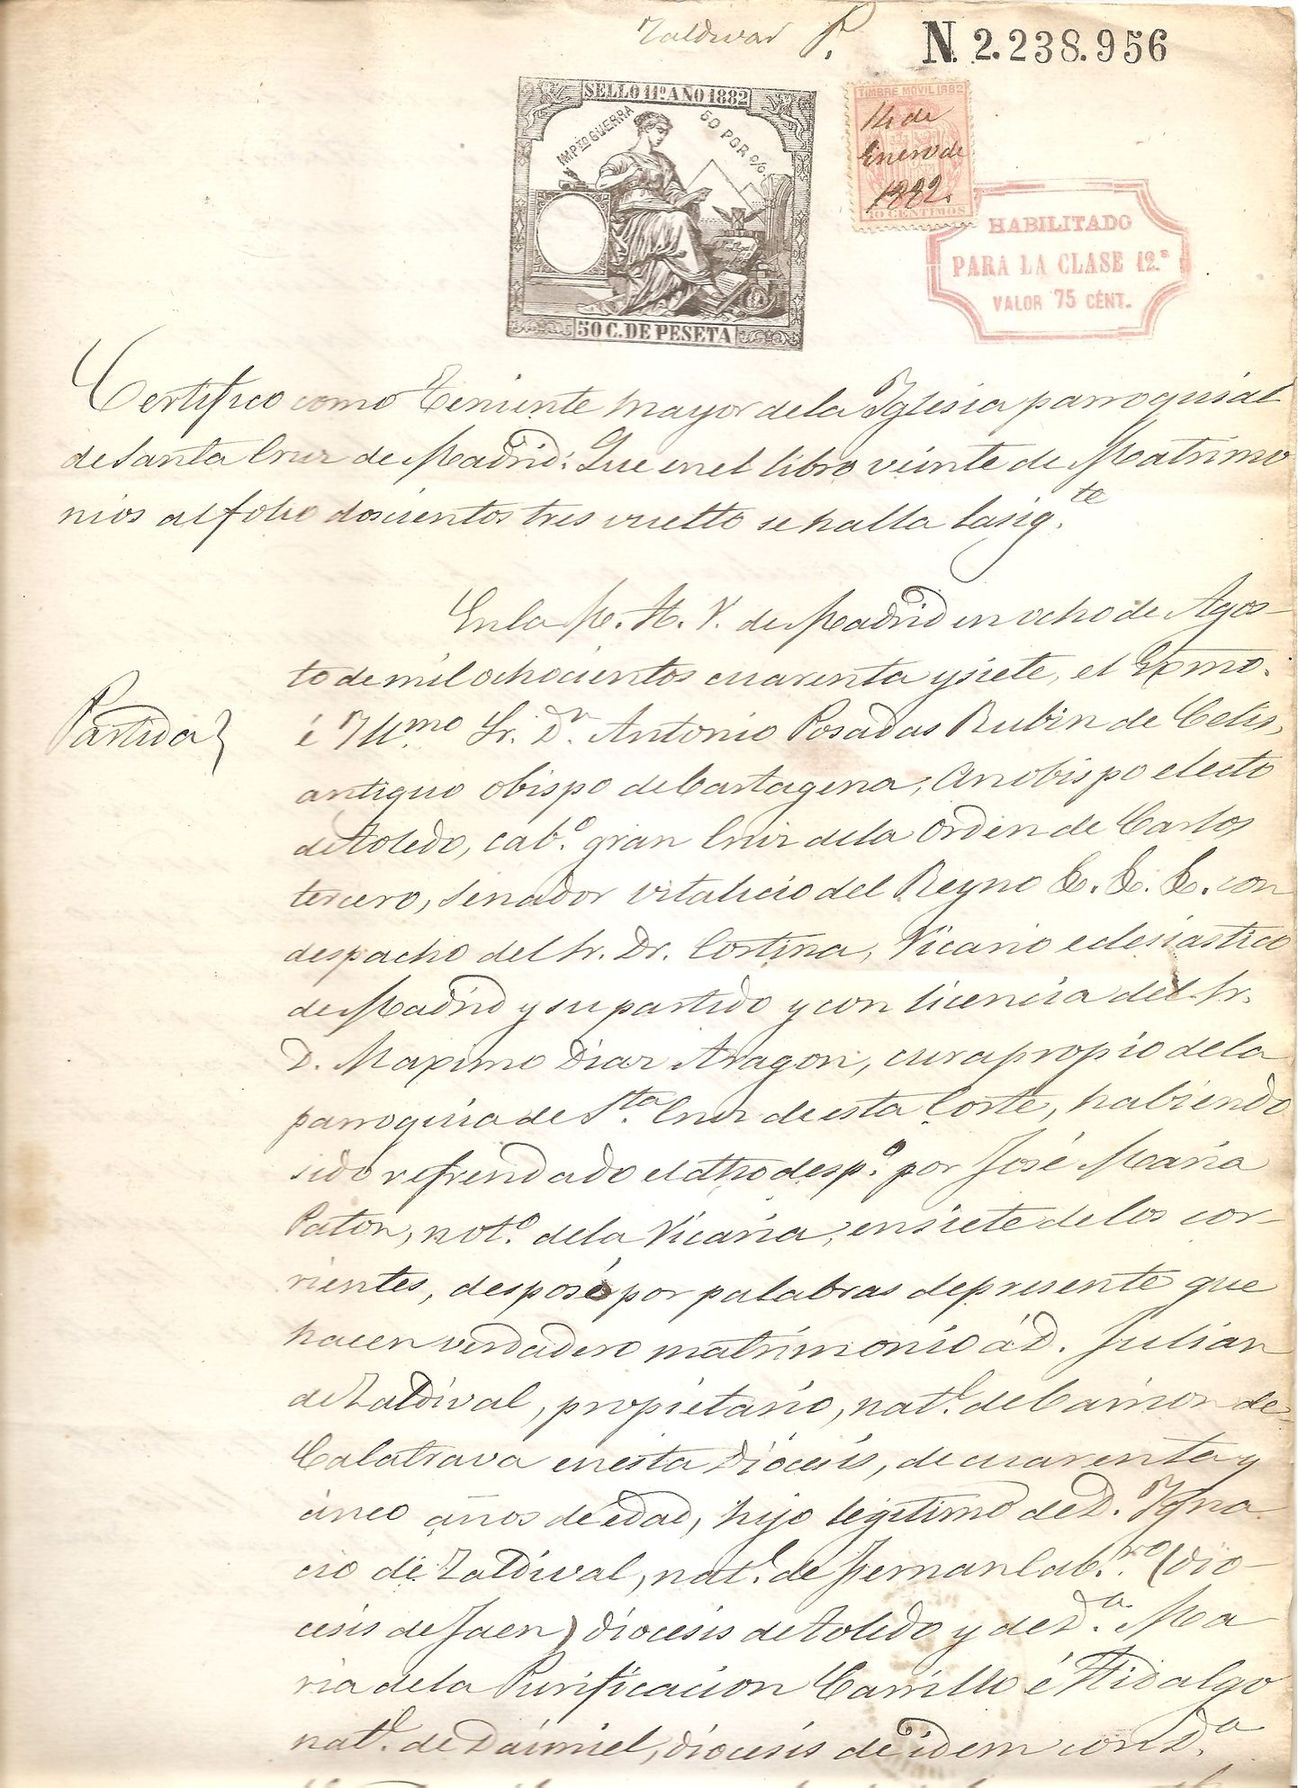 Zaldivar P.
N. 2.238.956
SELLO 11º AÑO 1882
IMPTO GUERRA 50 POR %
50 C. DE PESETA
TIMBRE MOVIL 1882
14 de
Enero de
1882.
10 CENTIMOS
HABILITADO
PARA LA CLASE 12.ª
VALOR 75 CÉNT.
Certifico como Teniente mayor de la Yglesia parroquial
de Santa Cruz de Madrid: Que en el libro veinte de Matrimo
nios al folio doscientos tres vuelto se halla la sig.te
Partida
En la M. H. V. de Madrid en ocho de Agos-
to de mil ochocientos cuarenta y siete, el Exmo.
é Yllmo Sr. Dn. Antonio Posadas Rubin de Celis,
antiguo obispo de Cartagena, Arzobispo electo
de Toledo, cabo. gran Cruz de la Orden de Carlos
tercero, Senador vitalicio del Reyno &. &. &. con
despacho del Sr. Dr. Cortina, Vicario eclesiastico
de Madrid y su partido y con licencia del Sr.
D. Maximo Diaz Aragon, cura propio de la
parroquia de Sta. Cruz de esta Corte, habiendo
sido refrendado el dho despº. por José Maria
Paton, notº. de la Vicaria, en siete de los cor-
rientes, desposé por palabras de presente que
hacen verdadero matrimonio á D. Julian
de Zaldival, propietario, natl. de Carrion de
Calatrava en esta Diócesis, de cuarenta y
cinco años de edad, hijo legitimo de D. Ygna
cio de Zaldival, natl. de Fernan Cab.ro (dio-
cesis de Jaen) diocesis de Toledo y de Da. Ma
ria de la Purificacion Carrillo é Hidalgo
natl. de Daimiel, diocesis de idem con Da.